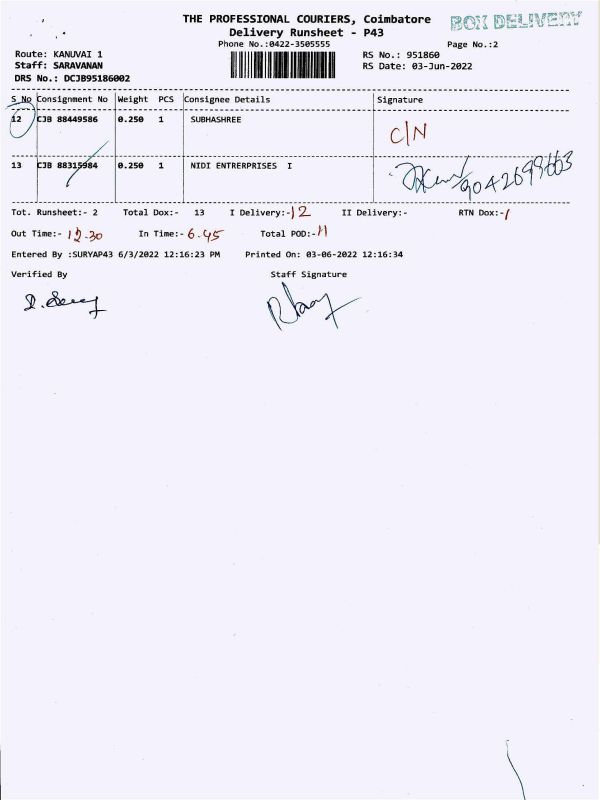 THE PROFESSIONAL COURIERS, Coimbatore
BOX DELIVERY
Delivery Runsheet - P43
Phone No.:0422-3505555
Page No.:2
Route: KANUVAI 1
RS No.: 951860
Staff: SARAVANAN
RS Date: 03-Jun-2022
DRS No.: DCJB95186002
S No Consignment No Weight PCS Consignee Details Signature
12 CJB 88449586 0.250 1 SUBHASHREE C/N
13 CJB 88315984 0.250 1 NIDI ENTRERPRISES I 9042699663
Tot. Runsheet:- 2 Total Dox:- 13 I Delivery:-12 II Delivery:- RTN Dox:-1
Out Time:- 12.30 In Time:- 6.45 Total POD:-11
Entered By :SURYAP43 6/3/2022 12:16:23 PM Printed On: 03-06-2022 12:16:34
Verified By Staff Signature